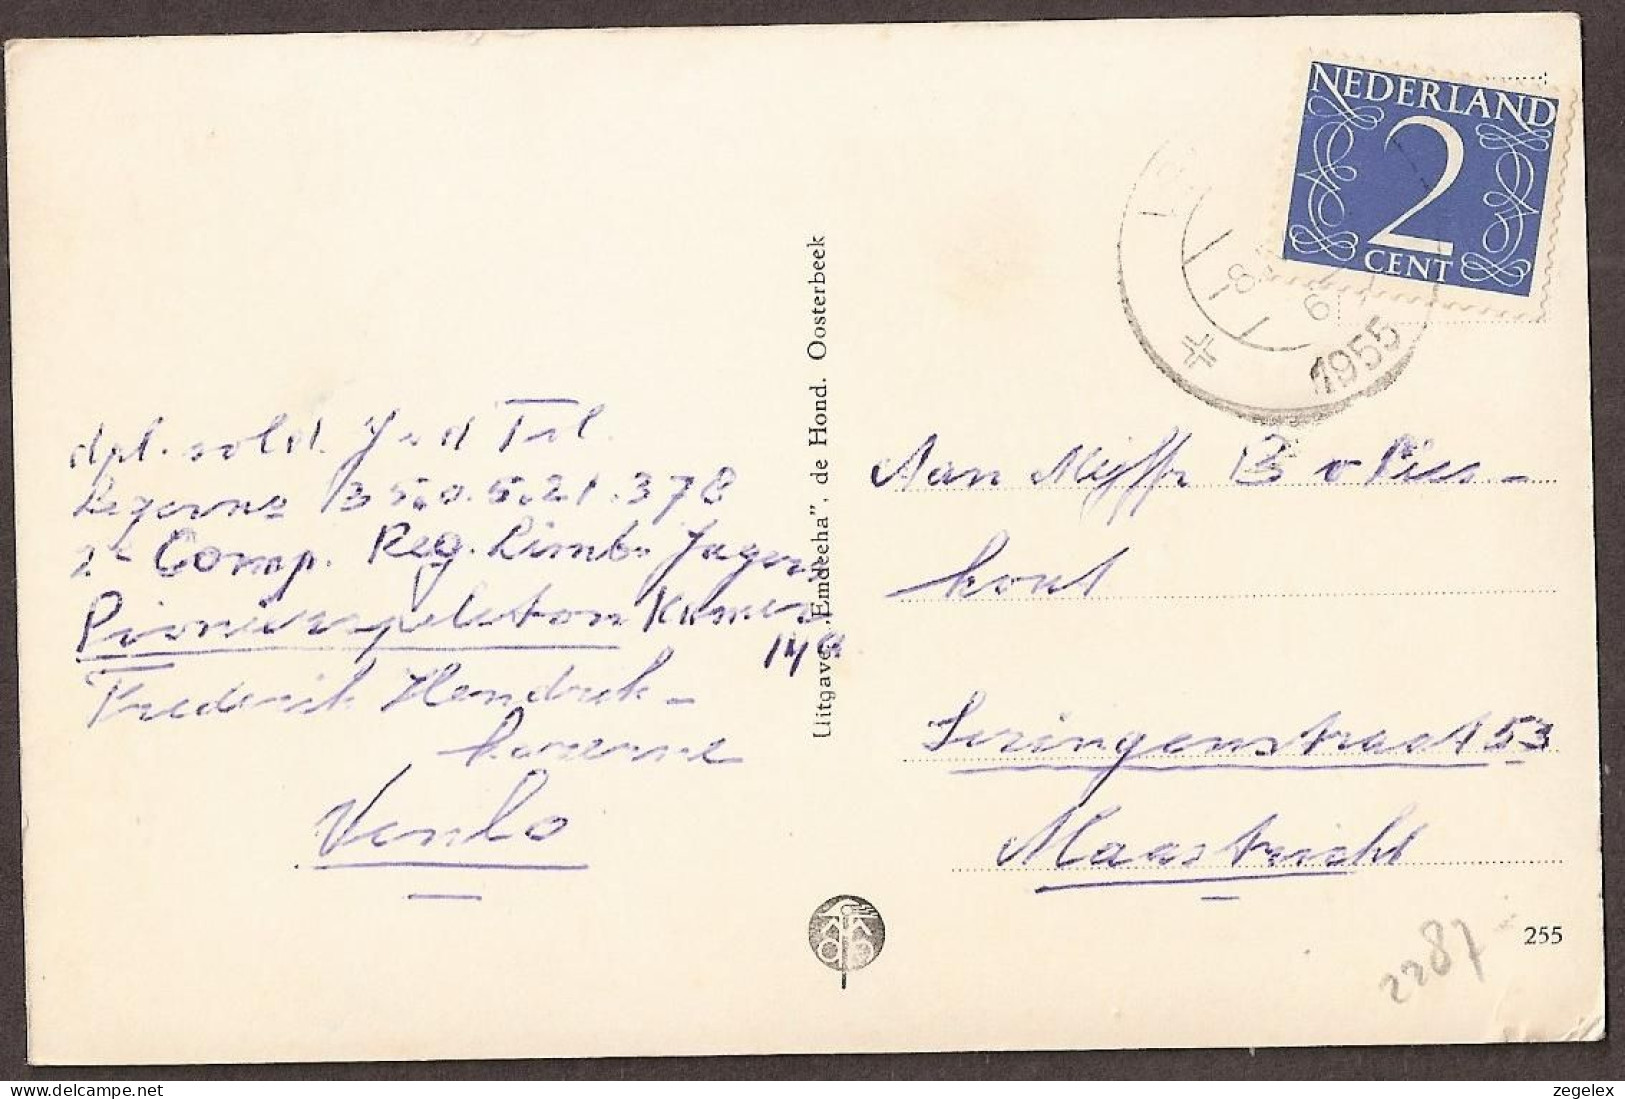 NEDERLAND
2
CENT
-8.
6
1955
dpl. sold. J v d Tol.
Legerno B 5.0.5.21.378
2e Comp. Reg. Limb. Jagers
Pionierspeloton Kamer
149
Frederik Hendrik-
kazerne
Venlo
Uitgave „Emdeeha”, de Hond. Oosterbeek
Aan Mejffr B v Plis-
kout
Seringenstraat 53
Maastricht
255
2287
zegelex